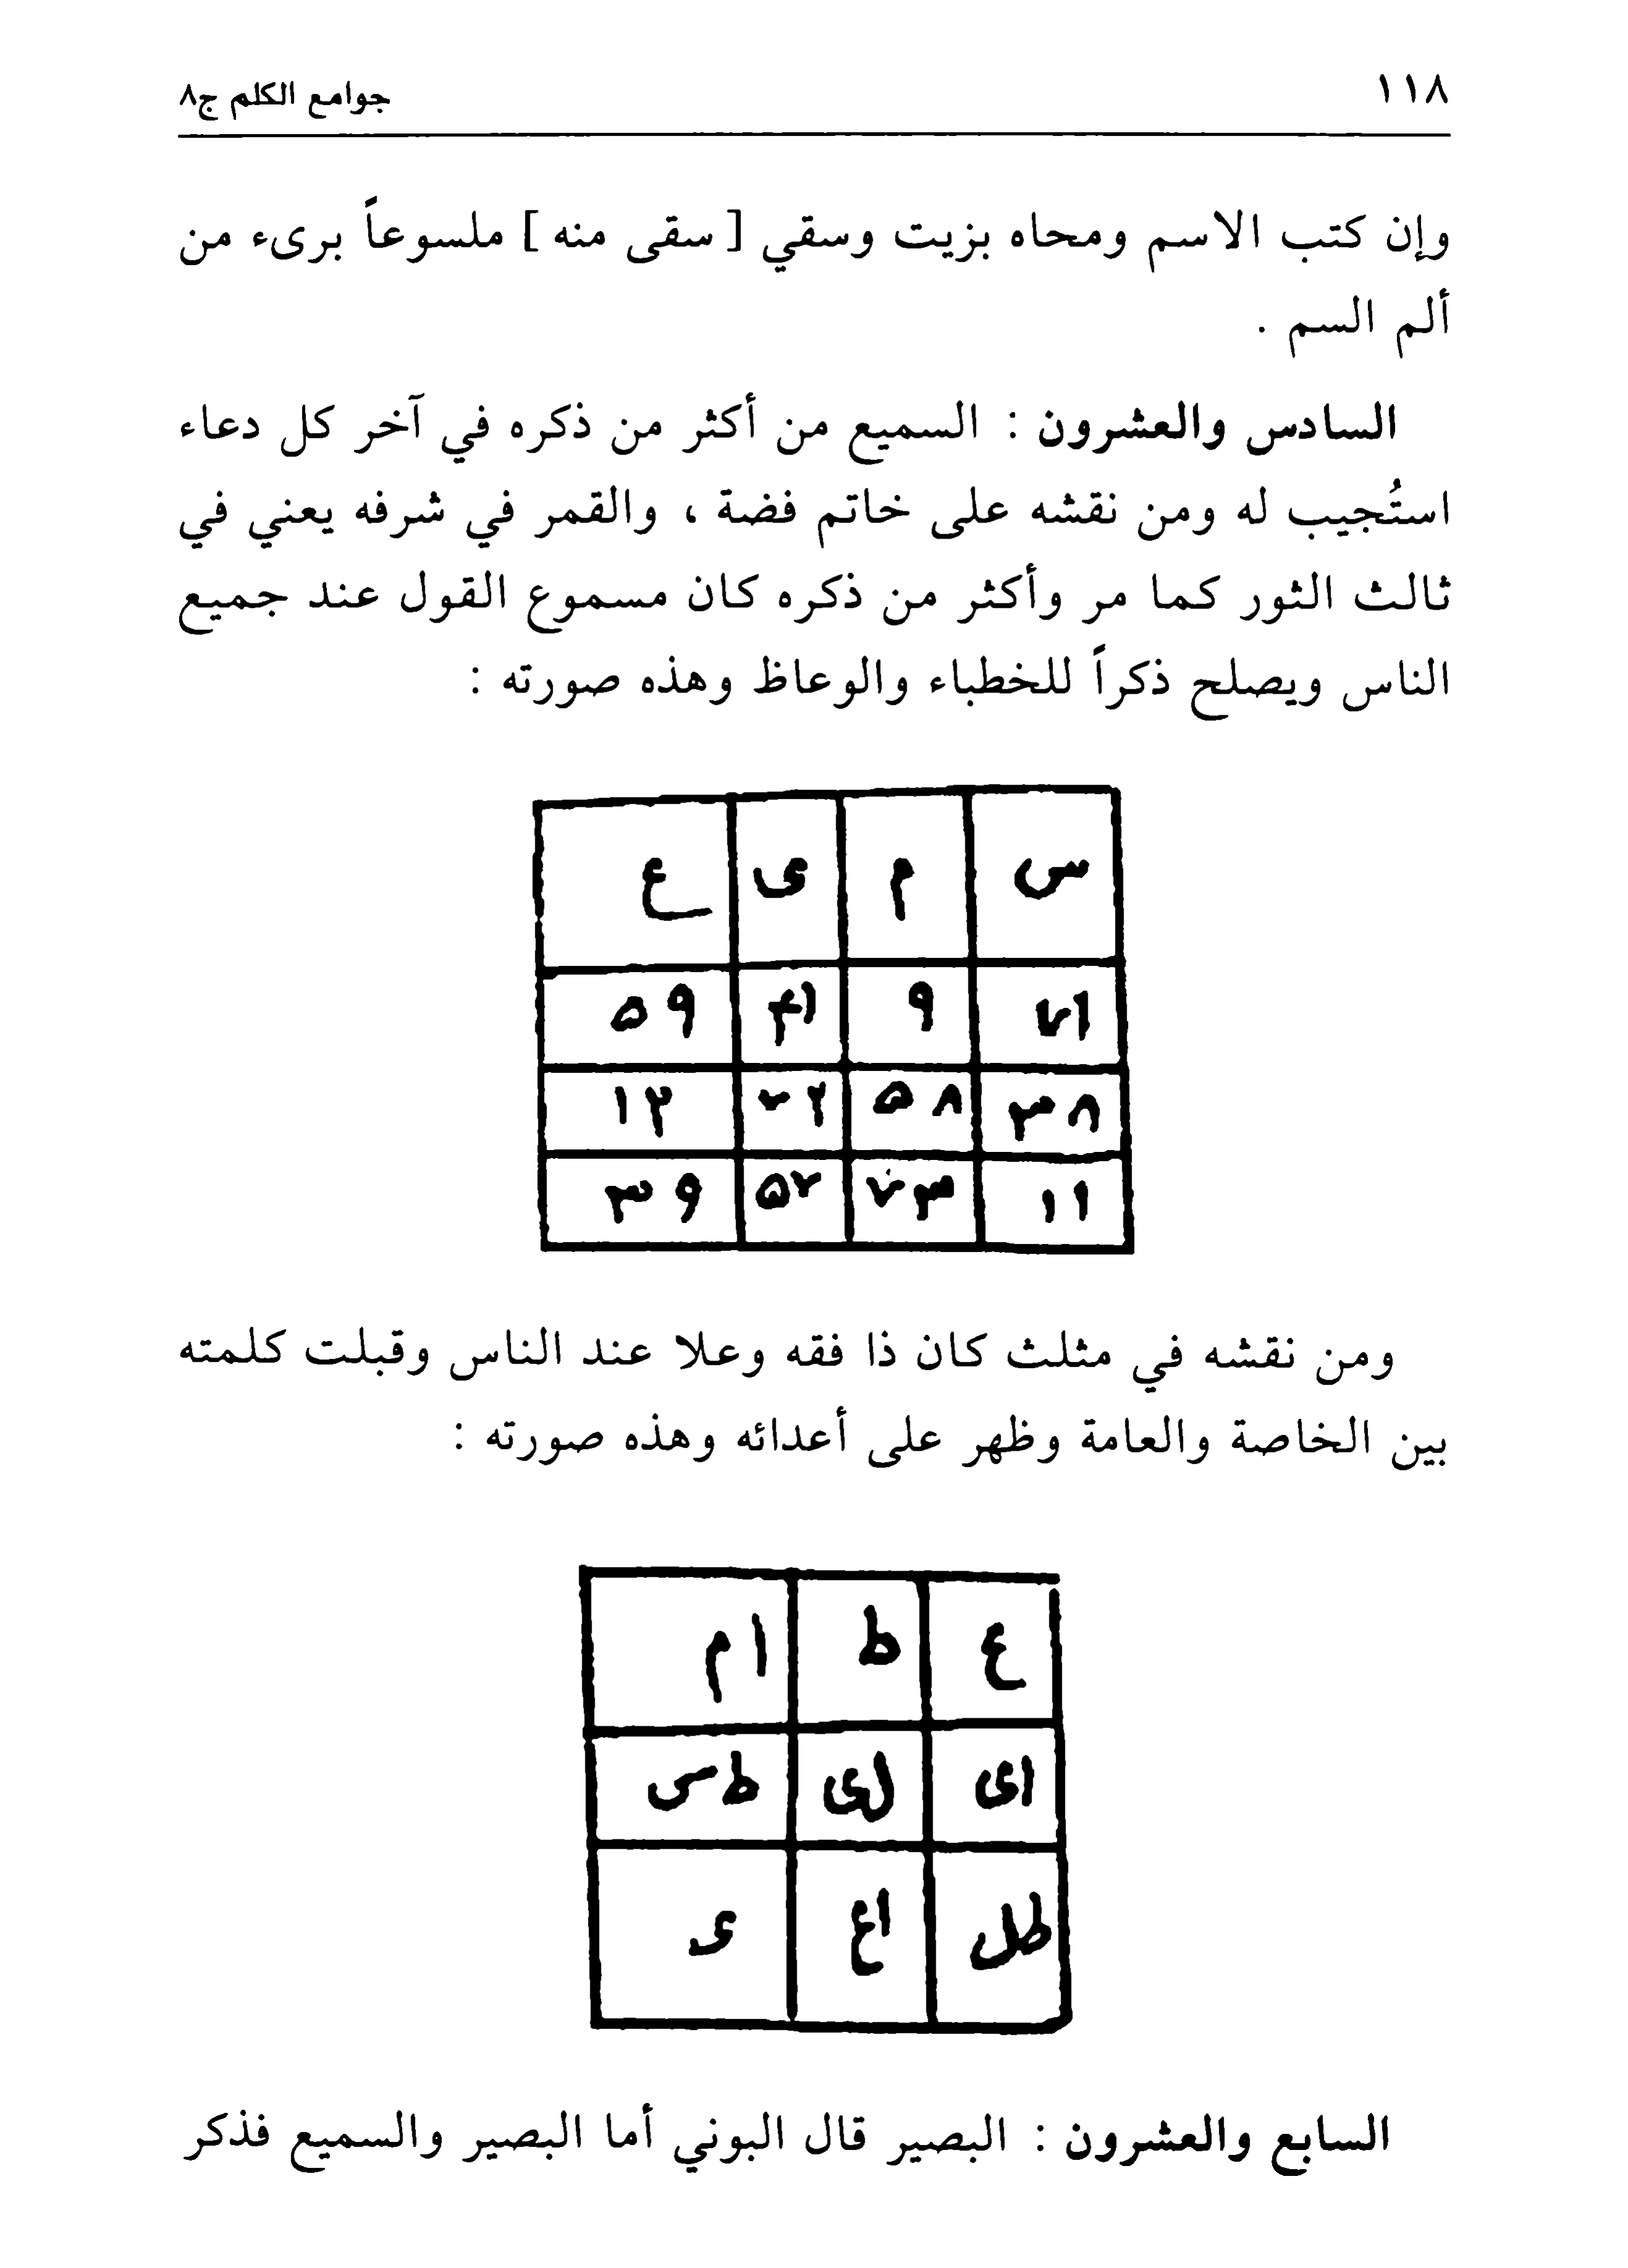 ١١٨ جوامع الكلم ج٨
وإن كتب الاسم ومحاه بزيت وسقي [ سقى منه ] ملسوعاً برىء من
ألم السم .
السادس والعشرون : السميع من أكثر من ذكره في آخر كل دعاء
استُجيب له ومن نقشه على خاتم فضة ، والقمر في شرفه يعني في
ثالث الثور كما مر وأكثر من ذكره كان مسموع القول عند جميع
الناس ويصلح ذكراً للخطباء والوعاظ وهذه صورته :
س م ى ع
٧١ ٩ ٤١ ٥٩
٣٨ ٥٨ ٧٢ ١٢
١١ ٧٣ ٥٧ ٣٩
ومن نقشه في مثلث كان ذا فقه وعلا عند الناس وقبلت كلمته
بين الخاصة والعامة وظهر على أعدائه وهذه صورته :
ع ط ام
اى لى طس
طل اع ى
السابع والعشرون : البصير قال البوني أما البصير والسميع فذكر